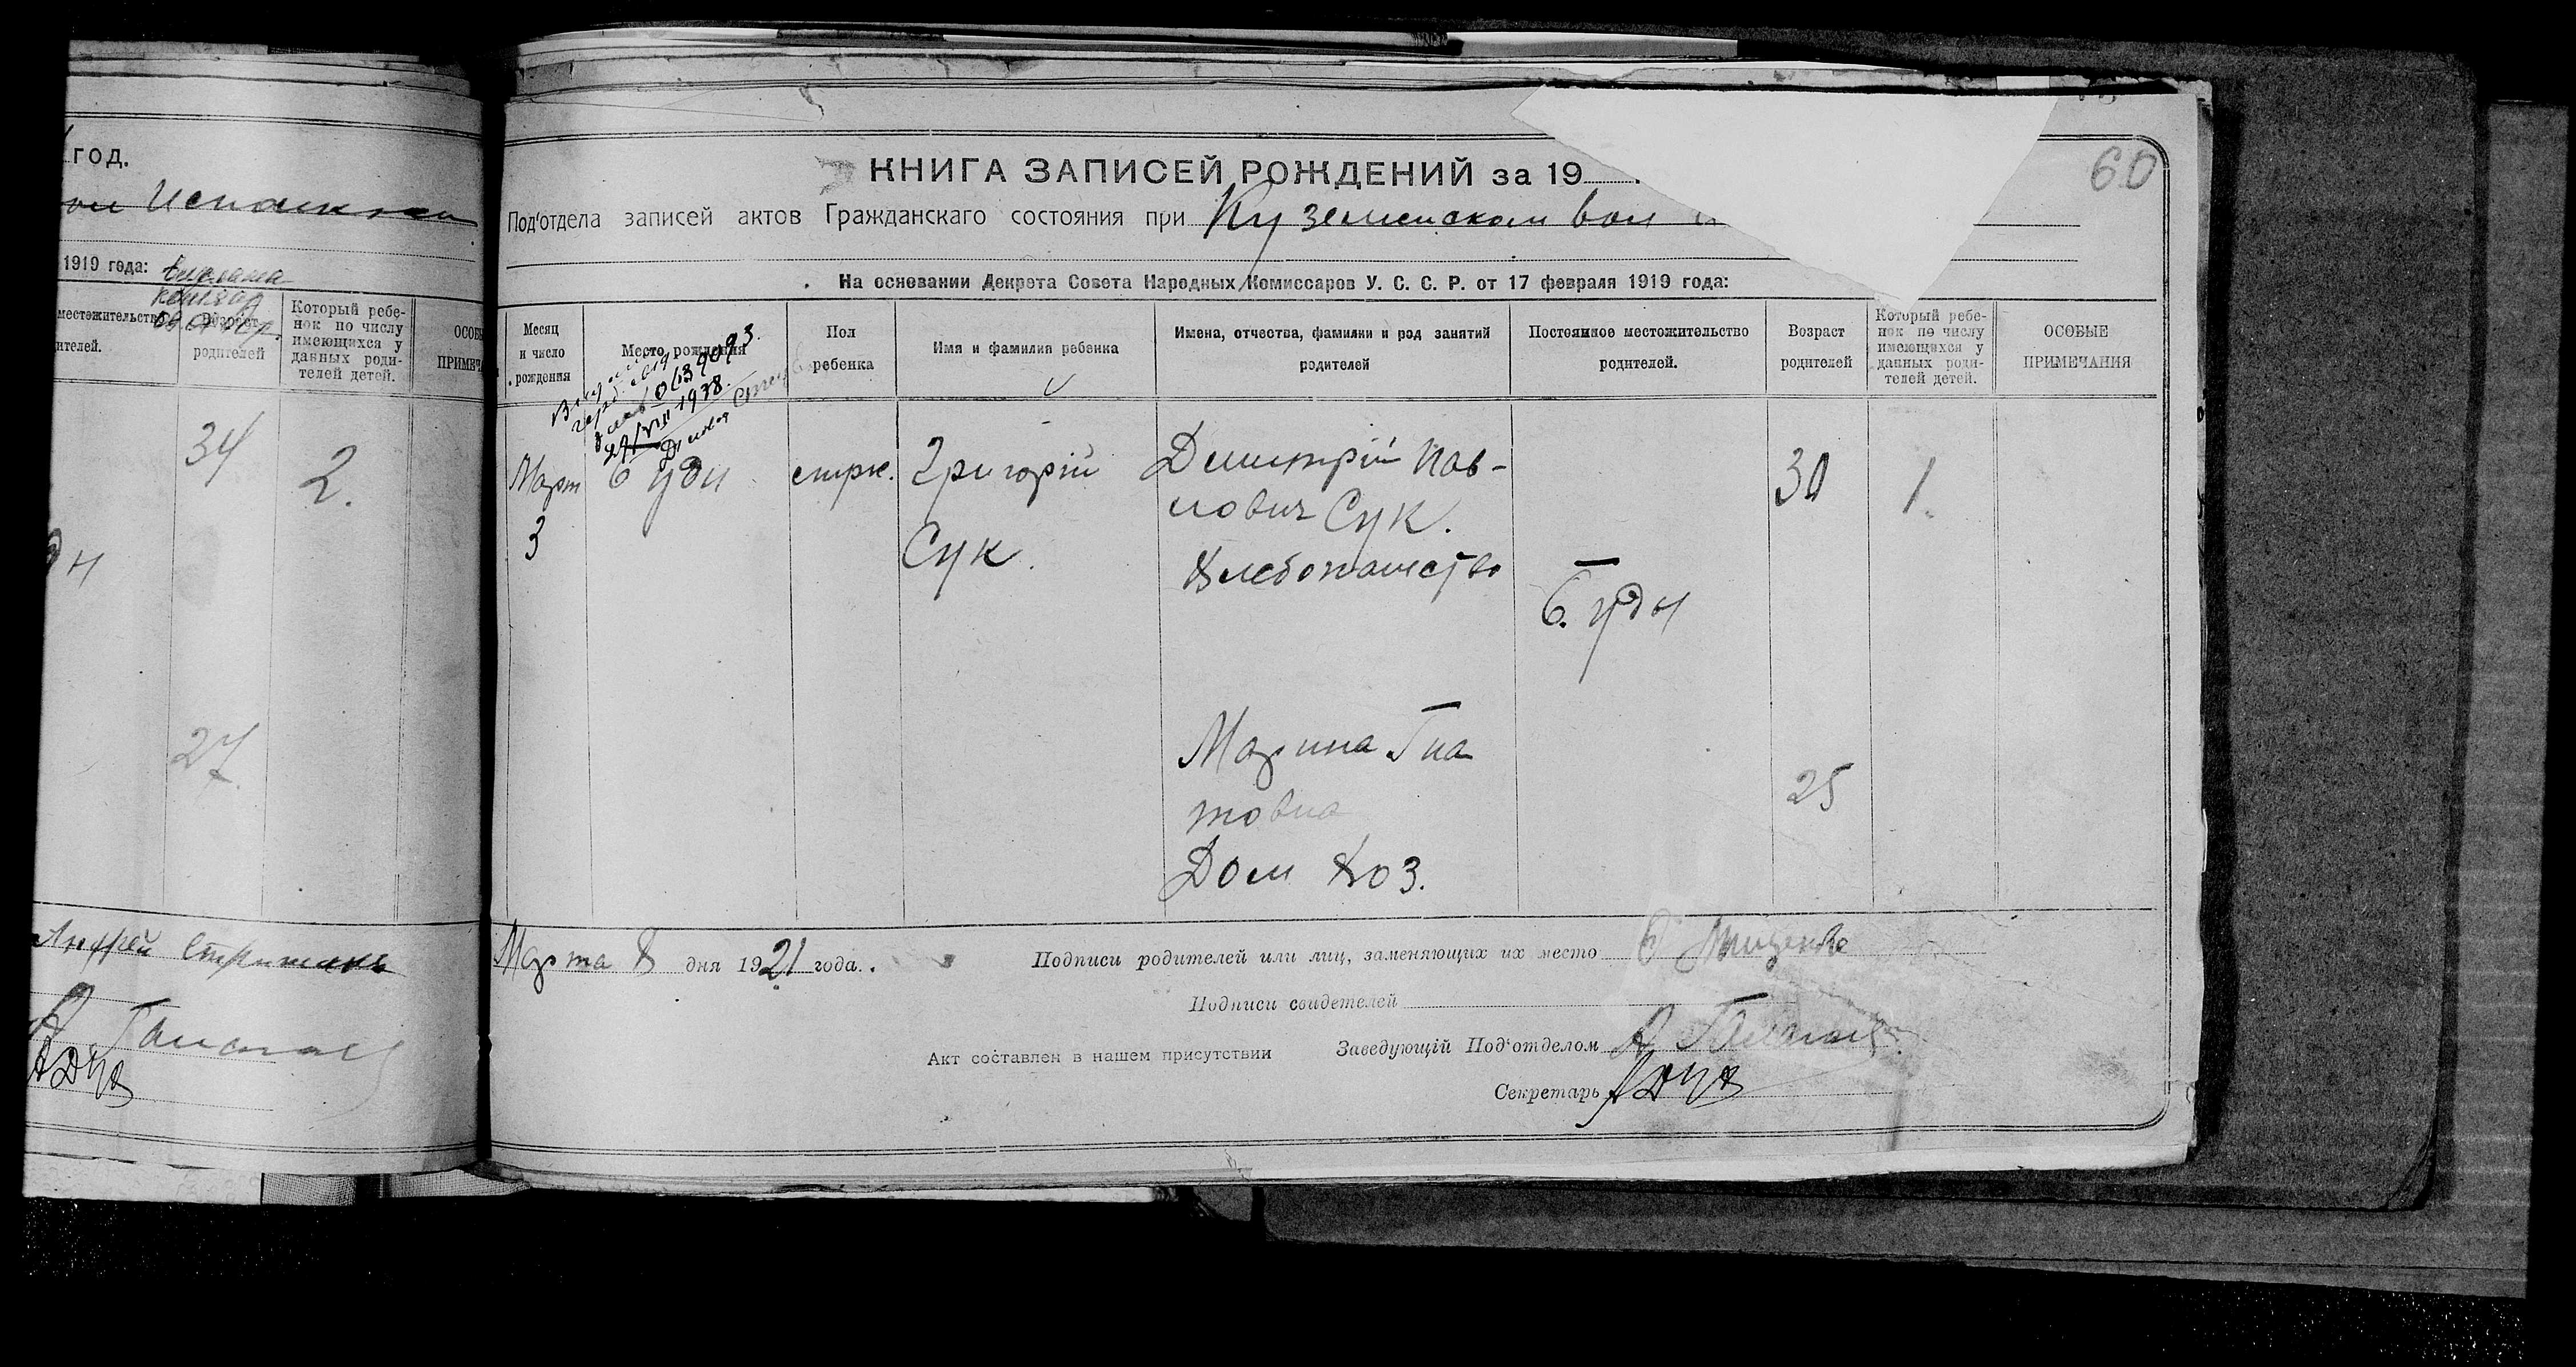 год.
1919 года:
местожительство
ителей.
Возраст
родителей
Который ребе-
нок по числу
имеющихся у
данных роди-
телей детей.
ОСОБЫ
ПРИМЕЧА
34
2.
27
Андрей
60
КНИГА ЗАПИСЕЙ РОЖДЕНИЙ за 19
Под'отдела записей актов Гражданскаго состояния при Куземенском вол
На основании Декрета Совета Народных Комиссаров У. С. С. Р. от 17 февраля 1919 года:
Месяц
и число
рождения
Место рождения
Пол
ребенка
Имя и фамилия ребенка
Имена, отчества, фамилии и род занятий
родителей
Постоянное местожительство
родителей.
Возраст
родителей
Который ребе-
нок по числу
имеющихся у
данных роди-
телей детей.
ОСОБЫЕ
ПРИМЕЧАНИЯ
1938.
Март
3
Б уды
Григорій
Сук.
Димитрій Пав-
лович Сук.
Хлебопашество
Б. уды
30
1.
Марина Гна
товна
Дом Хоз.
25
Марта 8 дня 1921 года.
Подписи родителей или лиц, заменяющих их место
Подписи свидетелей
Акт составлен в нашем присутствии
Заведующій Под'отделом
Секретарь